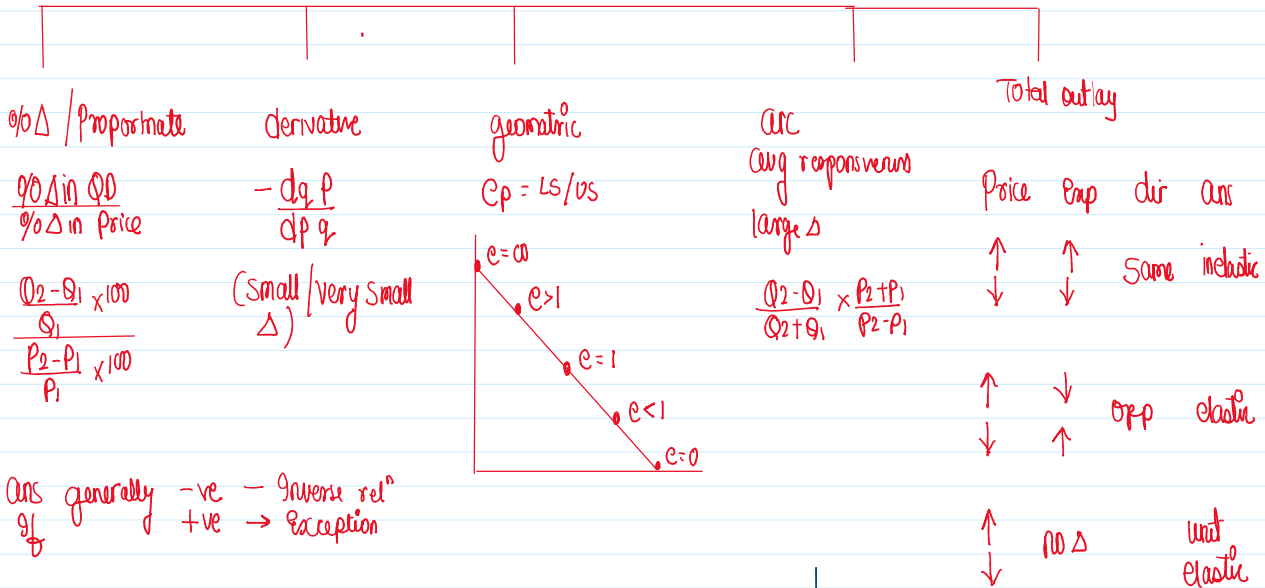 %Δ / Proportionate
%Δ in QD
%Δ in Price
Q2-Q1 x 100
Q1
P2-P1 x 100
P1
ans generally -ve - Inverse relⁿ
If +ve → Exception
derivative
- dq p
dp q
(small / very small
Δ)
geomatric
ep = LS/US
e=∞
e>1
e=1
e<1
e=0
arc
avg responsiveness
large Δ
Q2-Q1 x P2+P1
Q2+Q1 P2-P1
Total outlay
Price Exp dir ans
↑ ↑ Same inelastic
↓ ↓
↑ ↓ opp elastic
↓ ↑
↑ no Δ unit
↓ elastic